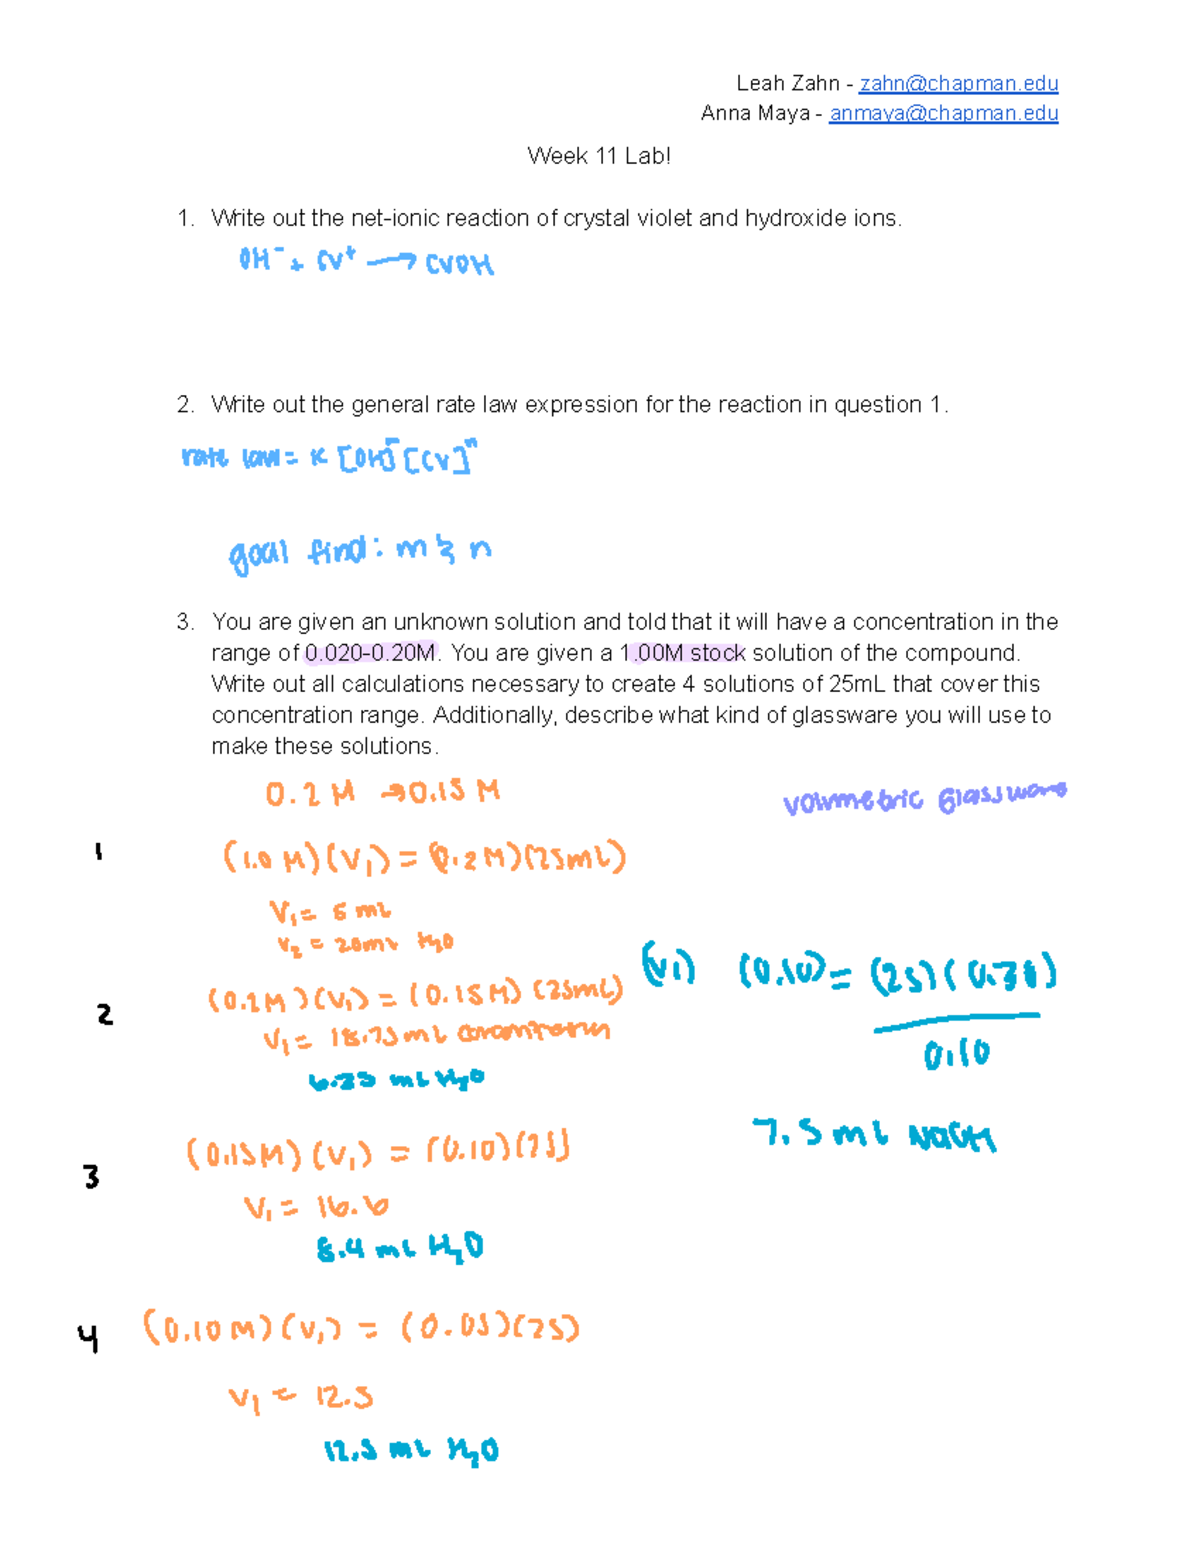 Leah Zahn - zahn@chapman.edu
Anna Maya - anmaya@chapman.edu
Week 11 Lab!
1. Write out the net-ionic reaction of crystal violet and hydroxide ions.
OH⁻ + CV⁺ → CVOH
2. Write out the general rate law expression for the reaction in question 1.
rate law = K [OH]ᵐ [CV]ⁿ
goal find: m & n
3. You are given an unknown solution and told that it will have a concentration in the
range of 0.020-0.20M. You are given a 1.00M stock solution of the compound.
Write out all calculations necessary to create 4 solutions of 25mL that cover this
concentration range. Additionally, describe what kind of glassware you will use to
make these solutions.
0.2 M → 0.15 M
volumetric glassware
1
(1.0 M)(V₁) = (0.2 M)(25mL)
V₁ = 5 mL
V₂ = 20mL H₂O
2
(0.2M)(V₁) = (0.15M)(25mL)
V₁ = 18.75 mL
6.25 mL H₂O
(V₁) (0.10) = (25)(0.30)
0.10
7.5 mL NaOH
3
(0.15M)(V₁) = (0.10)(25)
V₁ = 16.6
8.4 mL H₂O
4
(0.10M)(V₁) = (0.05)(25)
V₁ = 12.5
12.5 mL H₂O